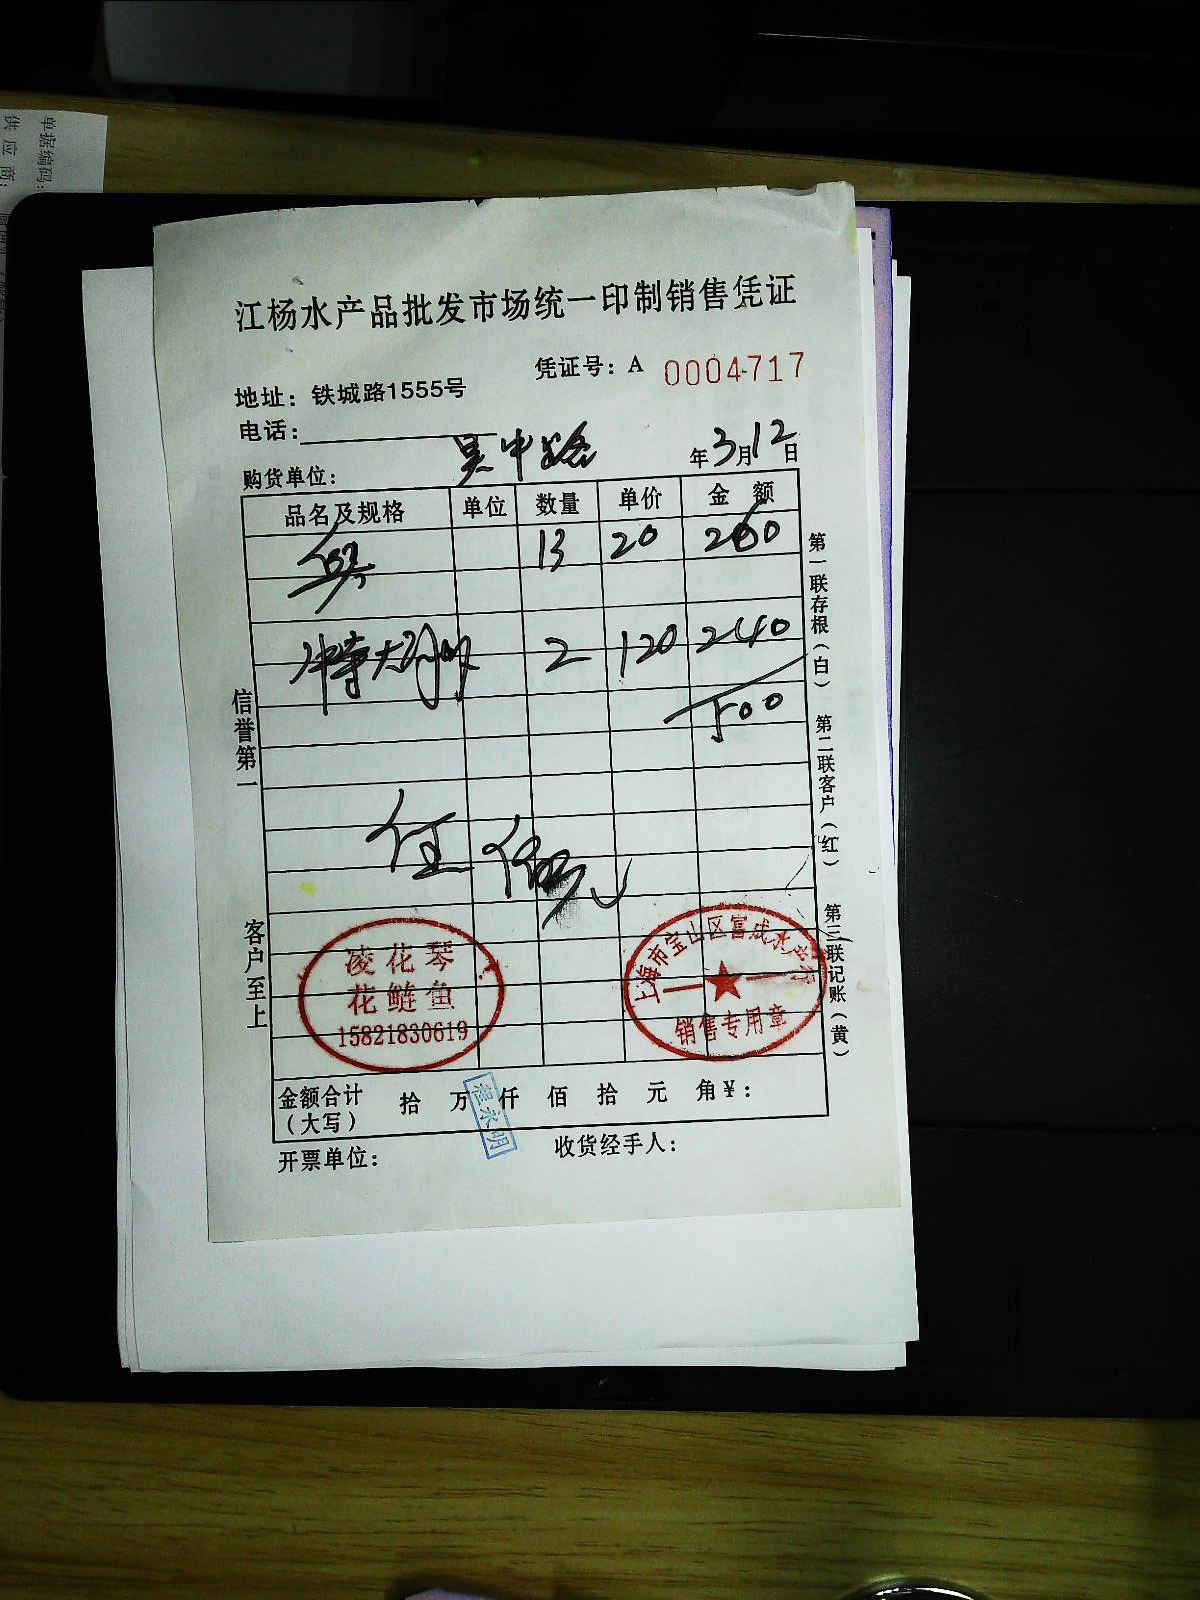 单据编码:
供应商:
江杨水产品批发市场统一印制销售凭证
凭证号: A 0004717
地址: 铁城路1555号
电话:
购货单位: 吴中路 年3月12日
品名及规格 单位 数量 单价 金 额
13 20 260
大 2 120 240
500
任
信誉第一
客户至上
第一联存根(白)
第二联客户(红)
第三联记账(黄)
凌花琴
花鲢鱼
15821830619
上海市宝山区富成水产行
销售专用章
金额合计(大写) 拾 万 仟 佰 拾 元 角¥:
程永明
开票单位: 收货经手人: